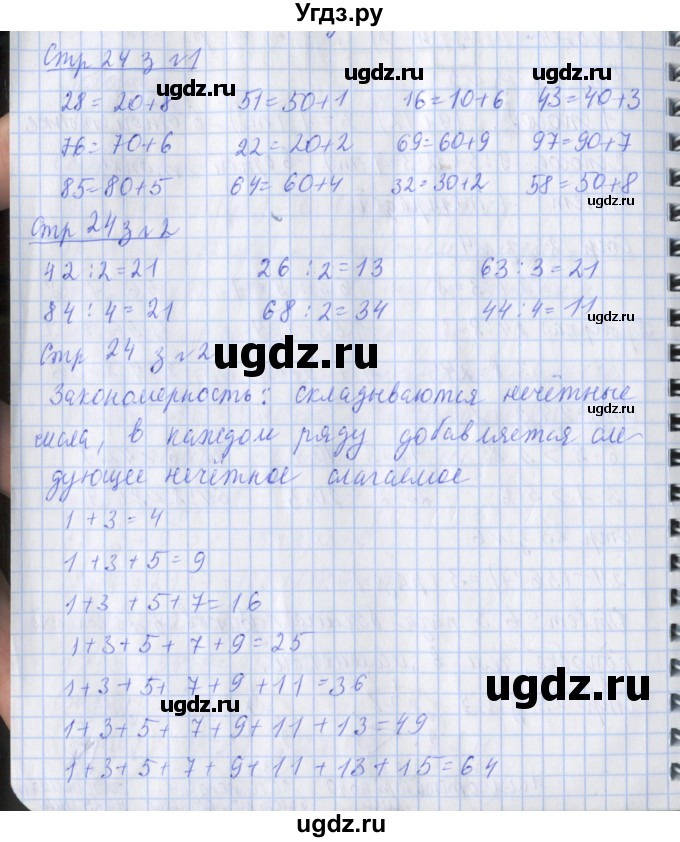 Угдз.ру
Стр 24 з №1
28 = 20+8 51 = 50+1 16 = 10+6 43 = 40+3
76 = 70+6 22 = 20+2 69 = 60+9 97 = 90+7
85 = 80+5 64 = 60+4 32 = 30+2 58 = 50+8
Стр 24 з №2
42 : 2 = 21 26 : 2 = 13 63 : 3 = 21
84 : 4 = 21 68 : 2 = 34 44 : 4 = 11
Стр 24 з №2
Закономерность: складываются нечётные
числа, в каждом ряду добавляется сле-
дующее нечётное слагаемое
1 + 3 = 4
1 + 3 + 5 = 9
1 + 3 + 5 + 7 = 16
1 + 3 + 5 + 7 + 9 = 25
1 + 3 + 5 + 7 + 9 + 11 = 36
1 + 3 + 5 + 7 + 9 + 11 + 13 = 49
1 + 3 + 5 + 7 + 9 + 11 + 13 + 15 = 64
ugdz.ru
ugdz.ru
ugdz.ru
ugdz.ru
ugdz.ru
ugdz.ru
ugdz.ru
ugdz.ru
ugdz.ru
ugdz.ru
ugdz.ru